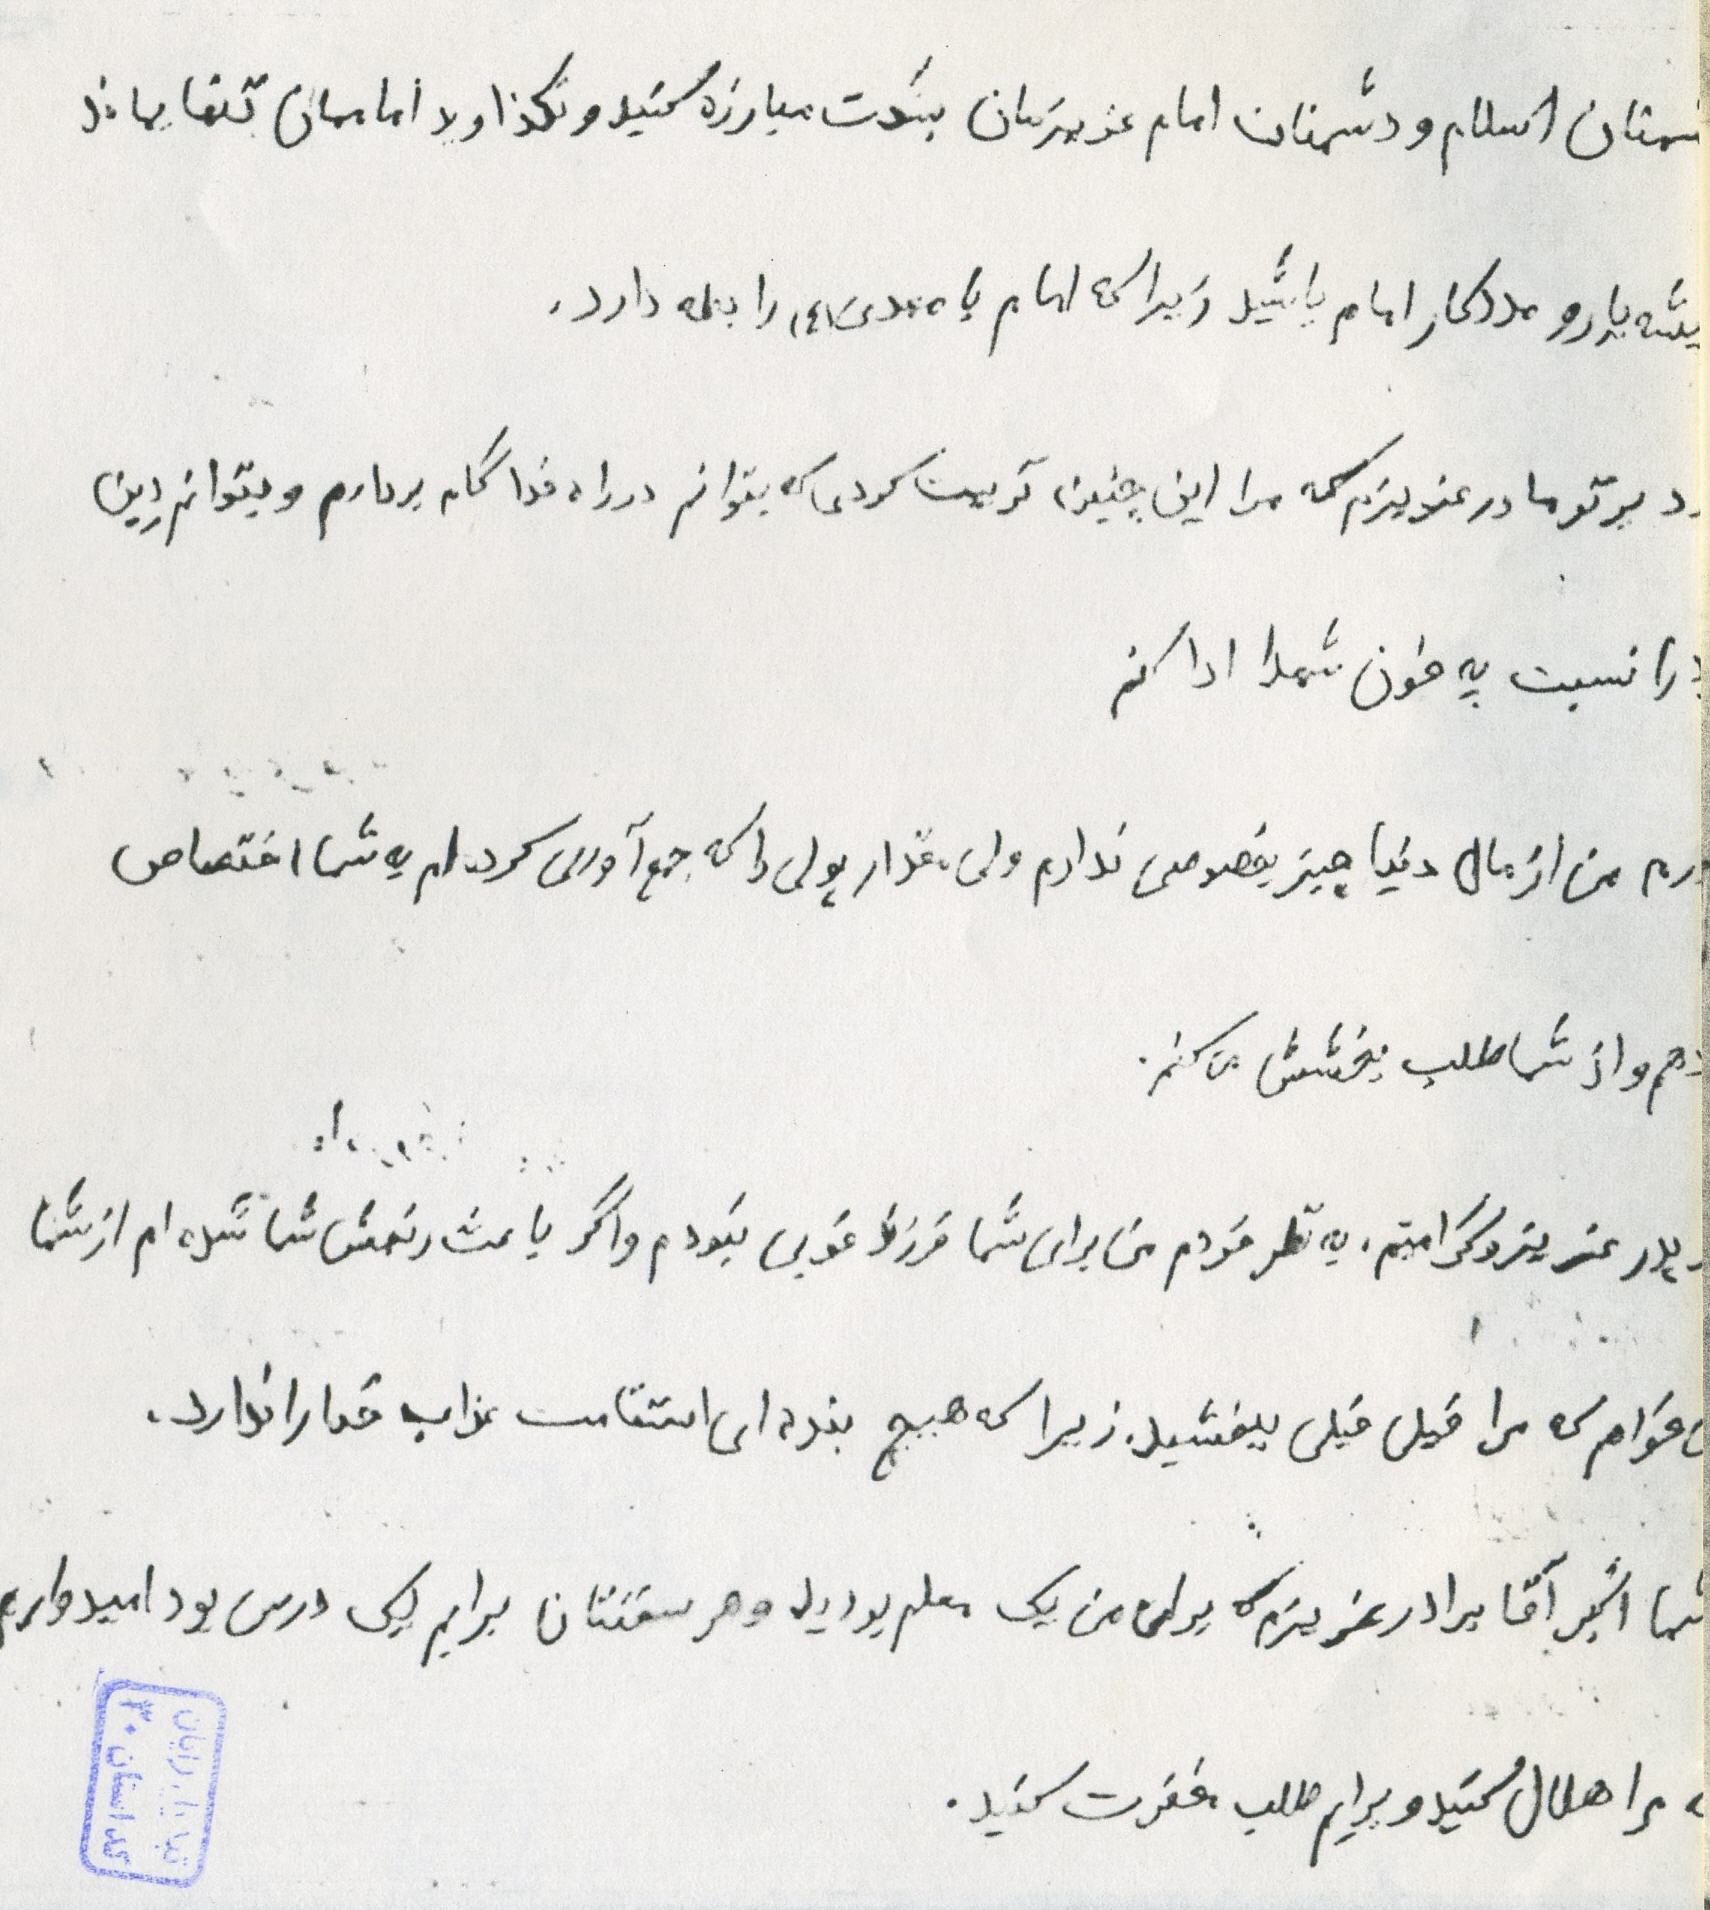 شمنان اسلام و دشمنان امام عزیزمان بشدت مبارزه کنید و نگذارید اماممان تنها بماند
یشه یار و مددکار امام باشید زیرا که امام با مهدی (عج) رابطه دارد.
رد بر تو مادر عزیزم که مرا این چنین تربیت کردی که بتوانم در راه خدا گام بردارم و بتوانم دین
د را نسبت به خون شهدا ادا کنم
درم من از مال دنیا چیز بخصوصی ندارم ولی مقدار پولی را که جمع آوری کرده ام به شما اختصاص
دهم و از شما طلب بخشش می کنم.
پدر عزیز و گرامیم، به نظر خودم من برای شما فرزند خوبی نبودم و اگر باعث رنجش شما شده ام از شما
ی خواهم که مرا خیلی خیلی ببخشید. زیرا که هیچ بنده ای استقامت عذاب خدا را ندارد.
شما اکبر آقا برادر عزیزم که برای من یک معلم بودید و هر سخنتان برایم یک درس بود امیدوارم
ه مرا حلال کنید و برایم طلب مغفرت کنید.
کد استان ۳۰